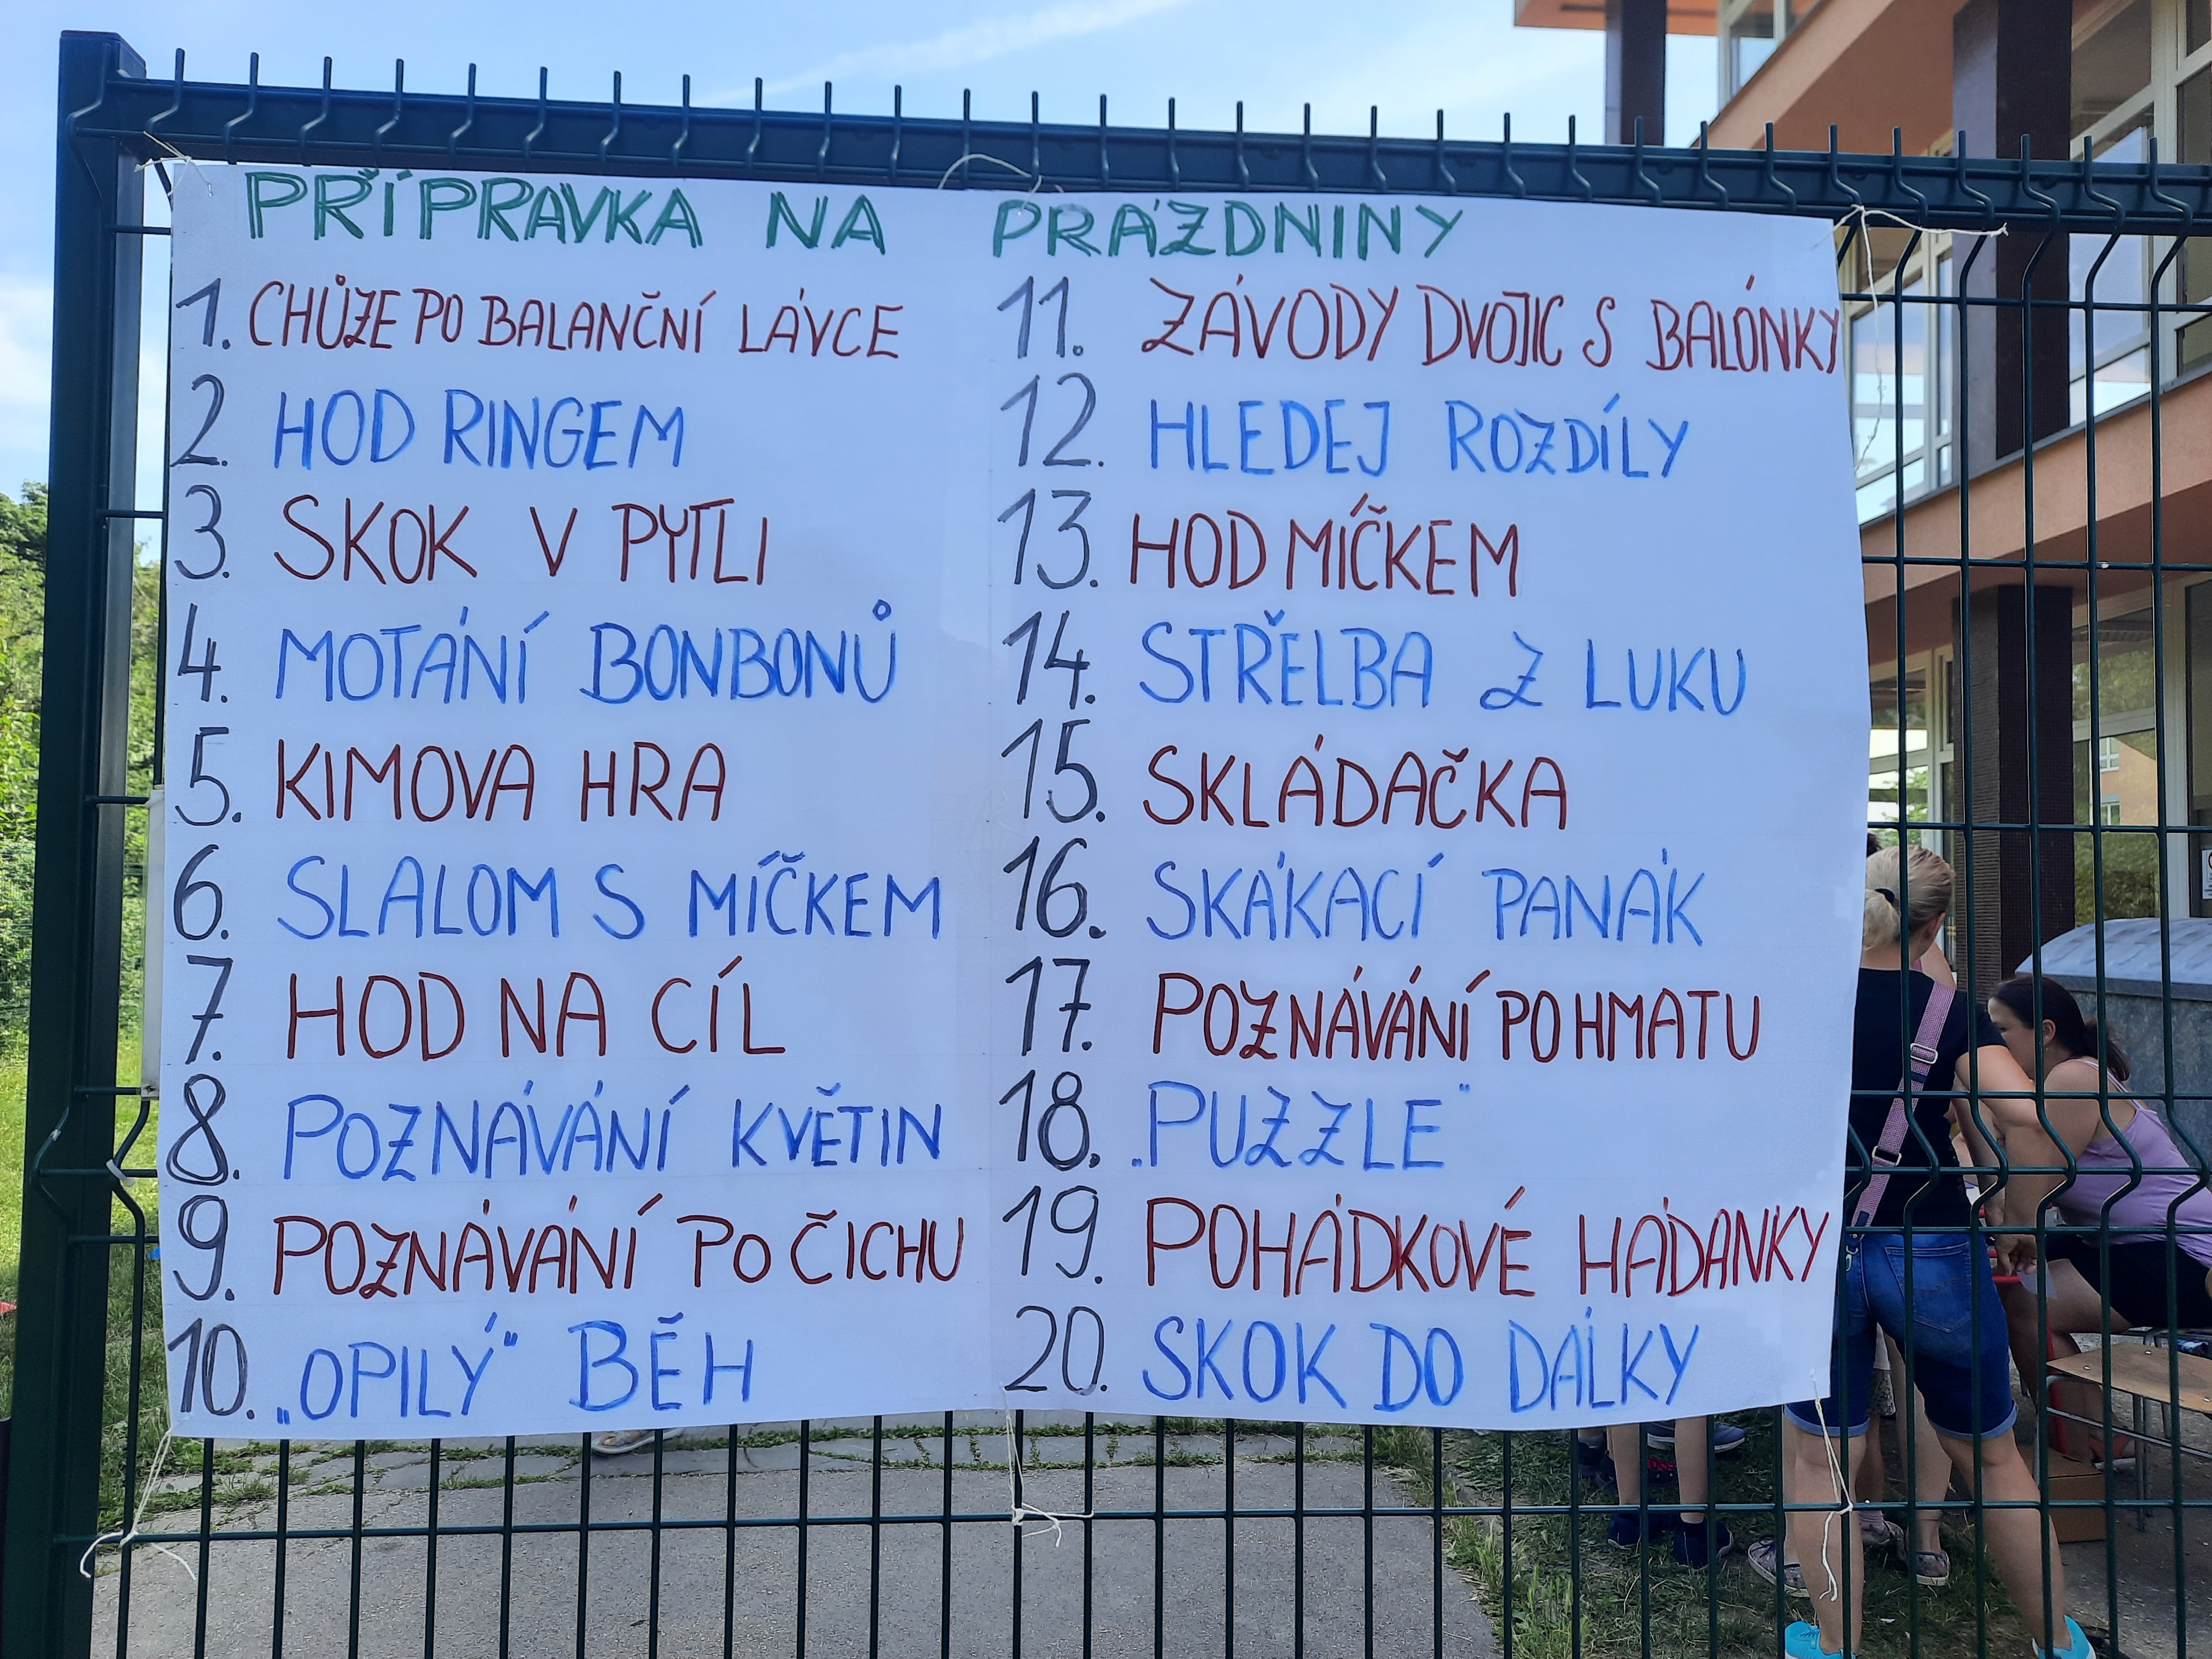 PŘÍPRAVKA NA PRÁZDNINY
1. CHŮZE PO BALANČNÍ LÁVCE
2. HOD RINGEM
3. SKOK V PYTLI
4. MOTÁNÍ BONBONŮ
5. KIMOVA HRA
6. SLALOM S MÍČKEM
7. HOD NA CÍL
8. POZNÁVÁNÍ KVĚTIN
9. POZNÁVÁNÍ PO ČICHU
10. „OPILÝ“ BĚH
11. ZÁVODY DVOJIC S BALÓNKY
12. HLEDEJ ROZDÍLY
13. HOD MÍČKEM
14. STŘELBA Z LUKU
15. SKLÁDAČKA
16. SKÁKACÍ PANÁK
17. POZNÁVÁNÍ PO HMATU
18. „PUZZLE“
19. POHÁDKOVÉ HÁDANKY
20. SKOK DO DÁLKY